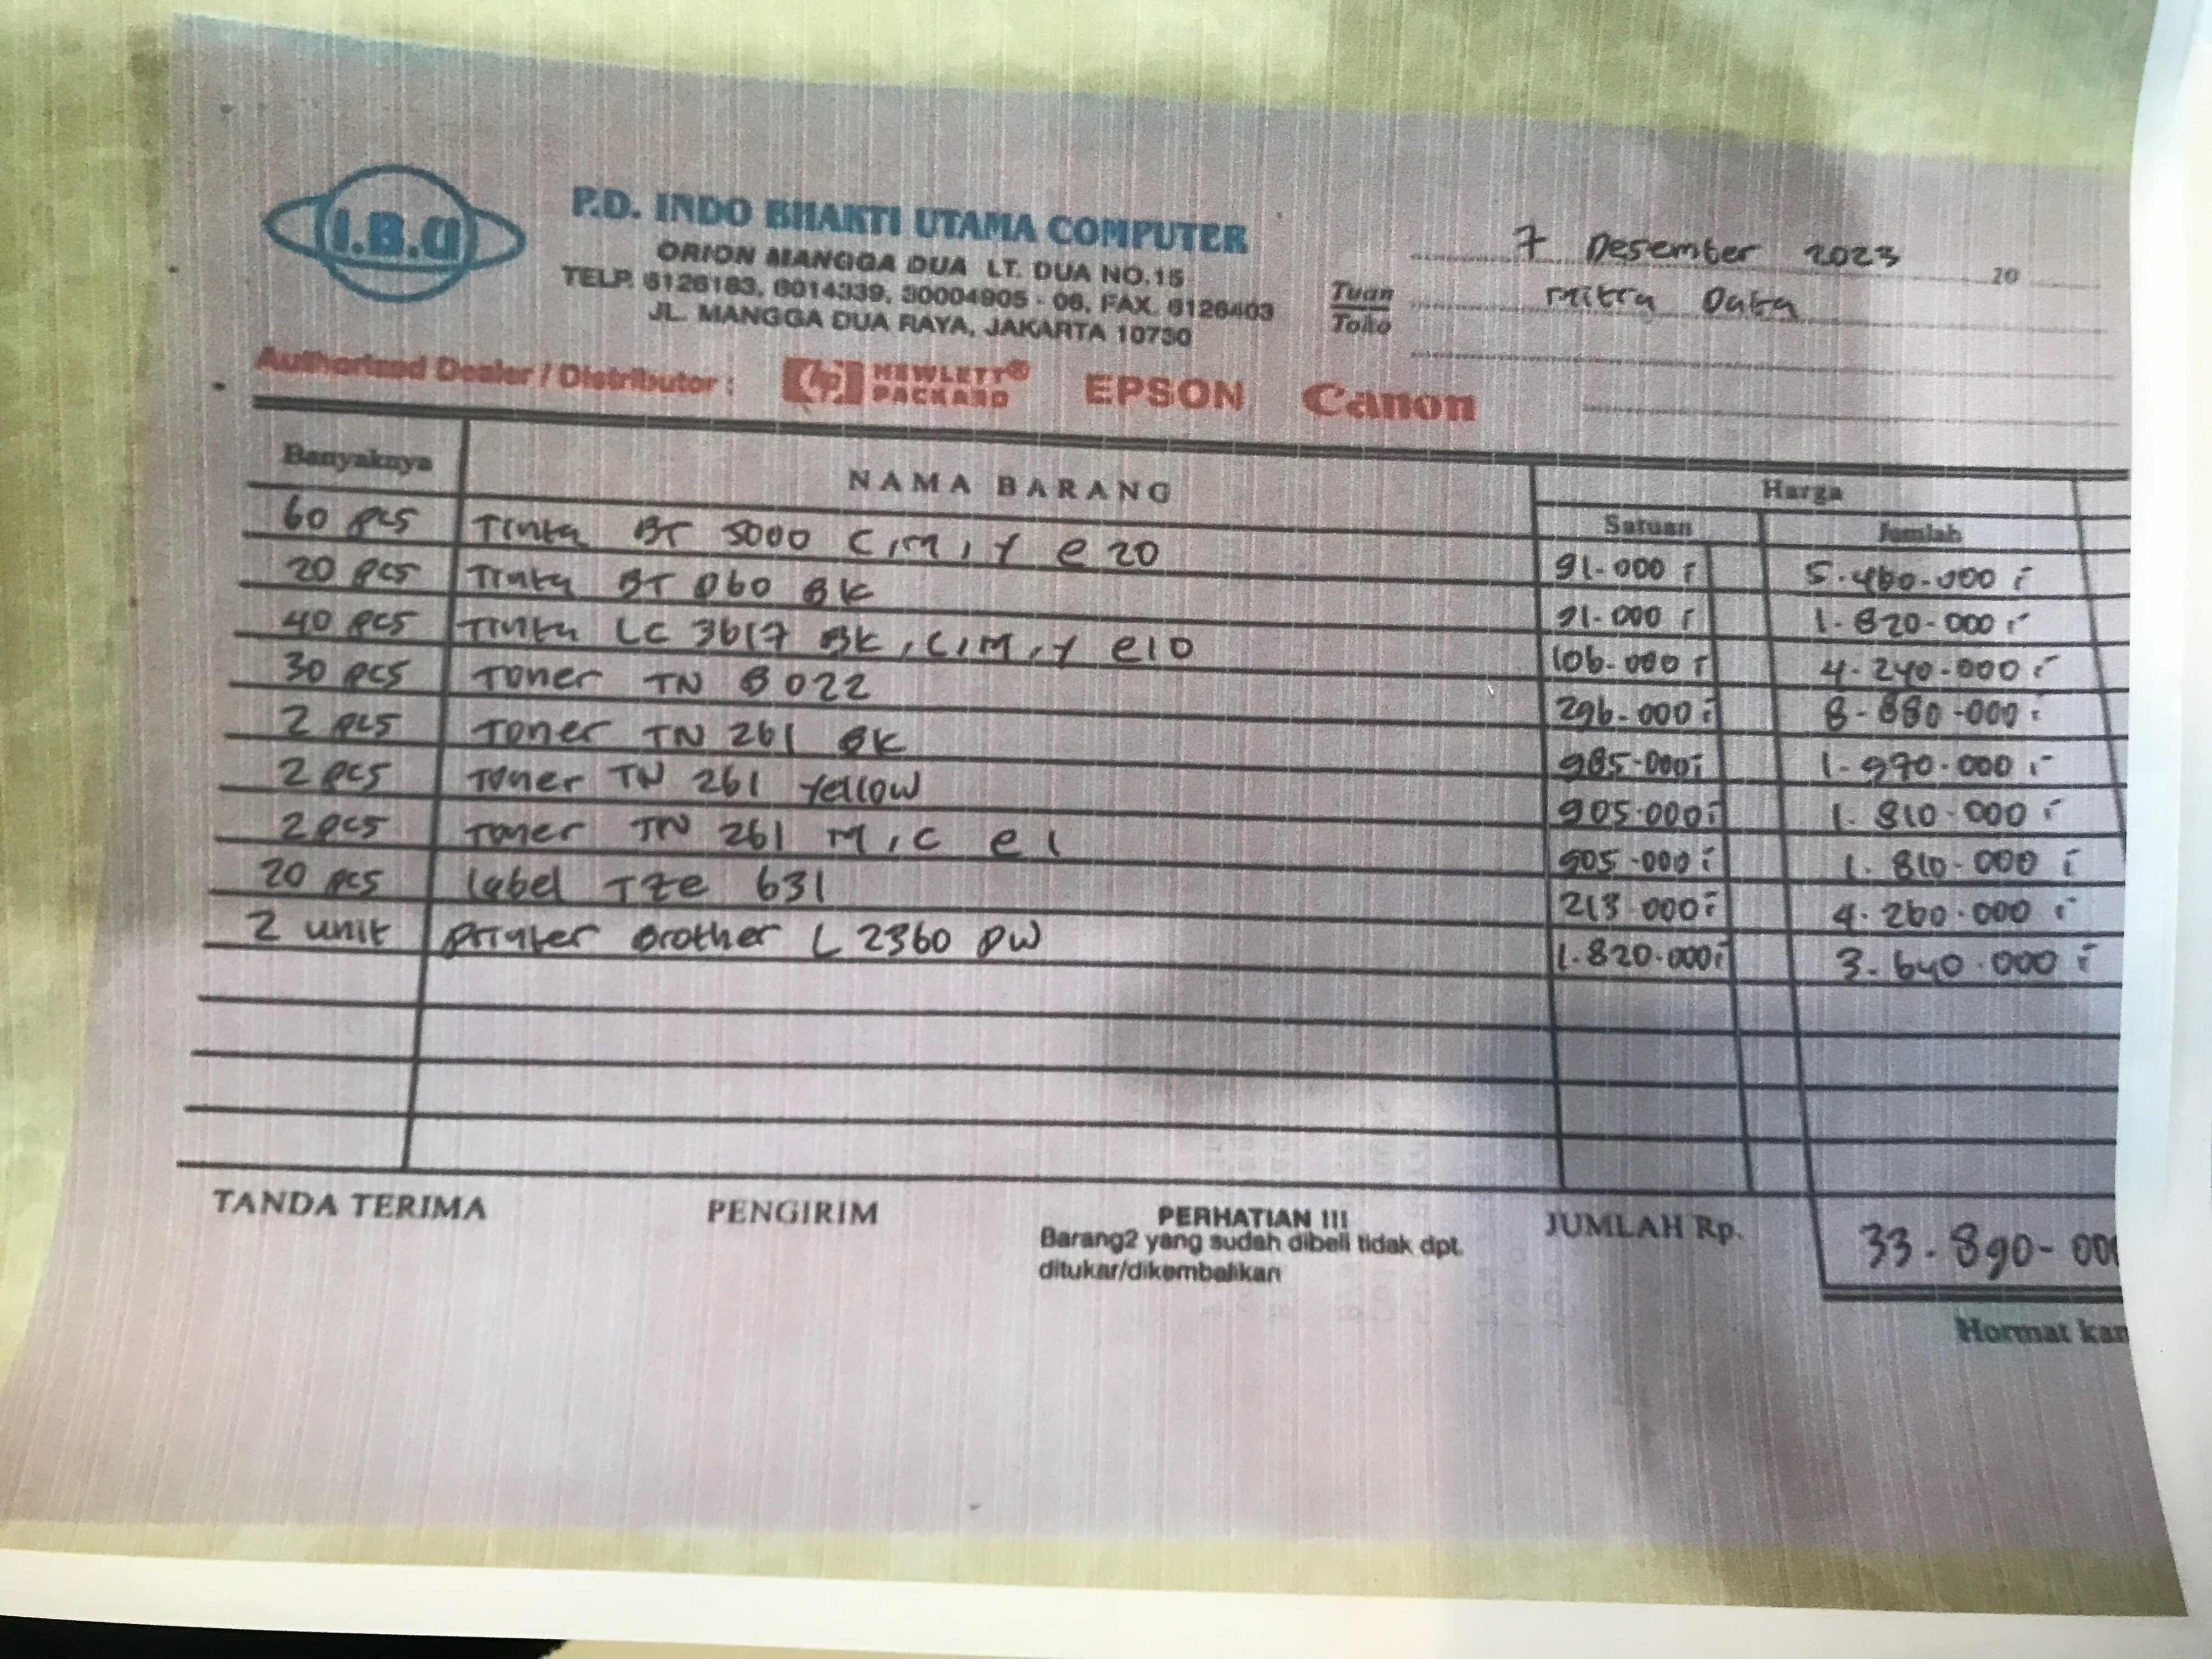 I.B.U
P.D. INDO BHAKTI UTAMA COMPUTER
ORION MANGGA DUA LT. DUA NO.15
TELP. 6126183, 6014339, 30004905 - 06, FAX. 6126403
JL. MANGGA DUA RAYA, JAKARTA 10730
7 Desember 2023 20
Tuan Mitra Data
Toko
Authorized Dealer / Distributor : hp HEWLETT® PACKARD EPSON Canon
Banyaknya NAMA BARANG Harga
Satuan Jumlah
60 pcs Tinta BT 5000 C,M,Y @ 20 91.000 5.460.000
20 pcs Tinta BT D60 BK 91.000 1.820.000
40 pcs Tinta LC 3617 BK,C,M,Y @10 106.000 4.240.000
30 pcs Toner TN B022 296.000 8.880.000
2 pcs Toner TN 261 BK 985.000 1.970.000
2 pcs Toner TN 261 Yellow 905.000 1.810.000
2 pcs Toner TN 261 M,C @ 1 905.000 1.810.000
20 pcs Label TZe 631 213.000 4.260.000
2 unit Printer Brother L 2360 DW 1.820.000 3.640.000
TANDA TERIMA PENGIRIM PERHATIAN !!! JUMLAH Rp. 33.890-000
Barang2 yang sudah dibeli tidak dpt.
ditukar/dikembalikan
Hormat kam